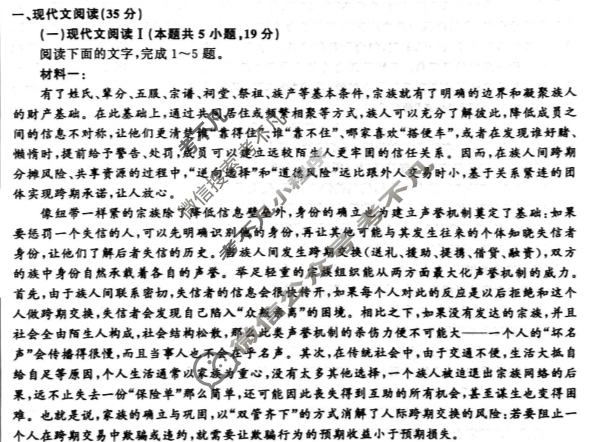 一、现代文阅读(35分)
(一)现代文阅读Ⅰ(本题共5小题,19分)
阅读下面的文字,完成1~5题。
材料一:
有了姓氏、辈分、五服、宗谱、祠堂、祭祖、族产等基本条件,宗族就有了明确的边界和凝聚族人
的财产基础。在此基础上,通过共同居住或频繁相聚等方式,族人可以充分了解彼此,降低成员之
间的信息不对称,让他们更清楚谁“靠得住”、谁“靠不住”、哪家喜欢“搭便车”,或者在发现谁好赌、
懒惰时,提前给予警告、处罚,成员可以建立远较陌生人更牢固的信任关系。因而,在族人间跨期
分摊风险、共享资源的过程中,“逆向选择”和“道德风险”远比跟外人交易时小,基于关系紧连的团
体实现跨期承诺,让人放心。
像纽带一样紧的宗族除了降低信息壁垒外,身份的确立也为建立声誉机制奠定了基础:如果
要惩罚一个失信的人,可以先明确识别他的身份,再让其他可能与其发生往来的个体知晓失信者
身份,让他们了解后者失信的历史。当族人间发生跨期交换(送礼、援助、提携、借贷、融资),双方
的族中身份自然承载着各自的声誉。举足轻重的宗族组织能从两方面最大化声誉机制的威力。
首先,由于族人间联系密切,失信者的信息会很快传开,如果每个人对此的反应是以后拒绝和这个
人做跨期交换,失信者会发现自己陷入“众叛亲离”的困境。相比之下,如果没有发达的宗族,并且
社会全由陌生人构成,社会结构松散,那么此类声誉机制的杀伤力便不可能大——一个人的“坏名
声”会传播得很慢,而且当事人也不会在乎名声。其次,在传统社会中,由于交通不便,生活大抵自
给自足等原因,个人生活通常以家族为重心,没有太多其他选择,一个族人被迫退出宗族网络的后
果,远不止失去一份“保险单”那么简单,还可能因此丧失得到互助的所有机会,甚至谋生也变得困
难。也就是说,家族的确立与巩固,以“双管齐下”的方式消解了人际跨期交换的风险:若要阻止一
个人在跨期交易中欺骗或违约,就需要让欺骗行为的预期收益小于预期损失。
考不凡
微信搜索考不凡
考不凡小程序
微信公众号 考不凡